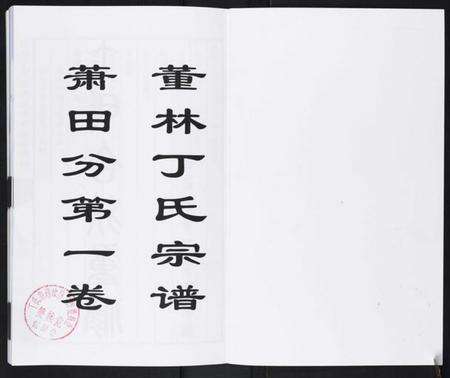 董林丁氏宗谱
萧田分第一卷